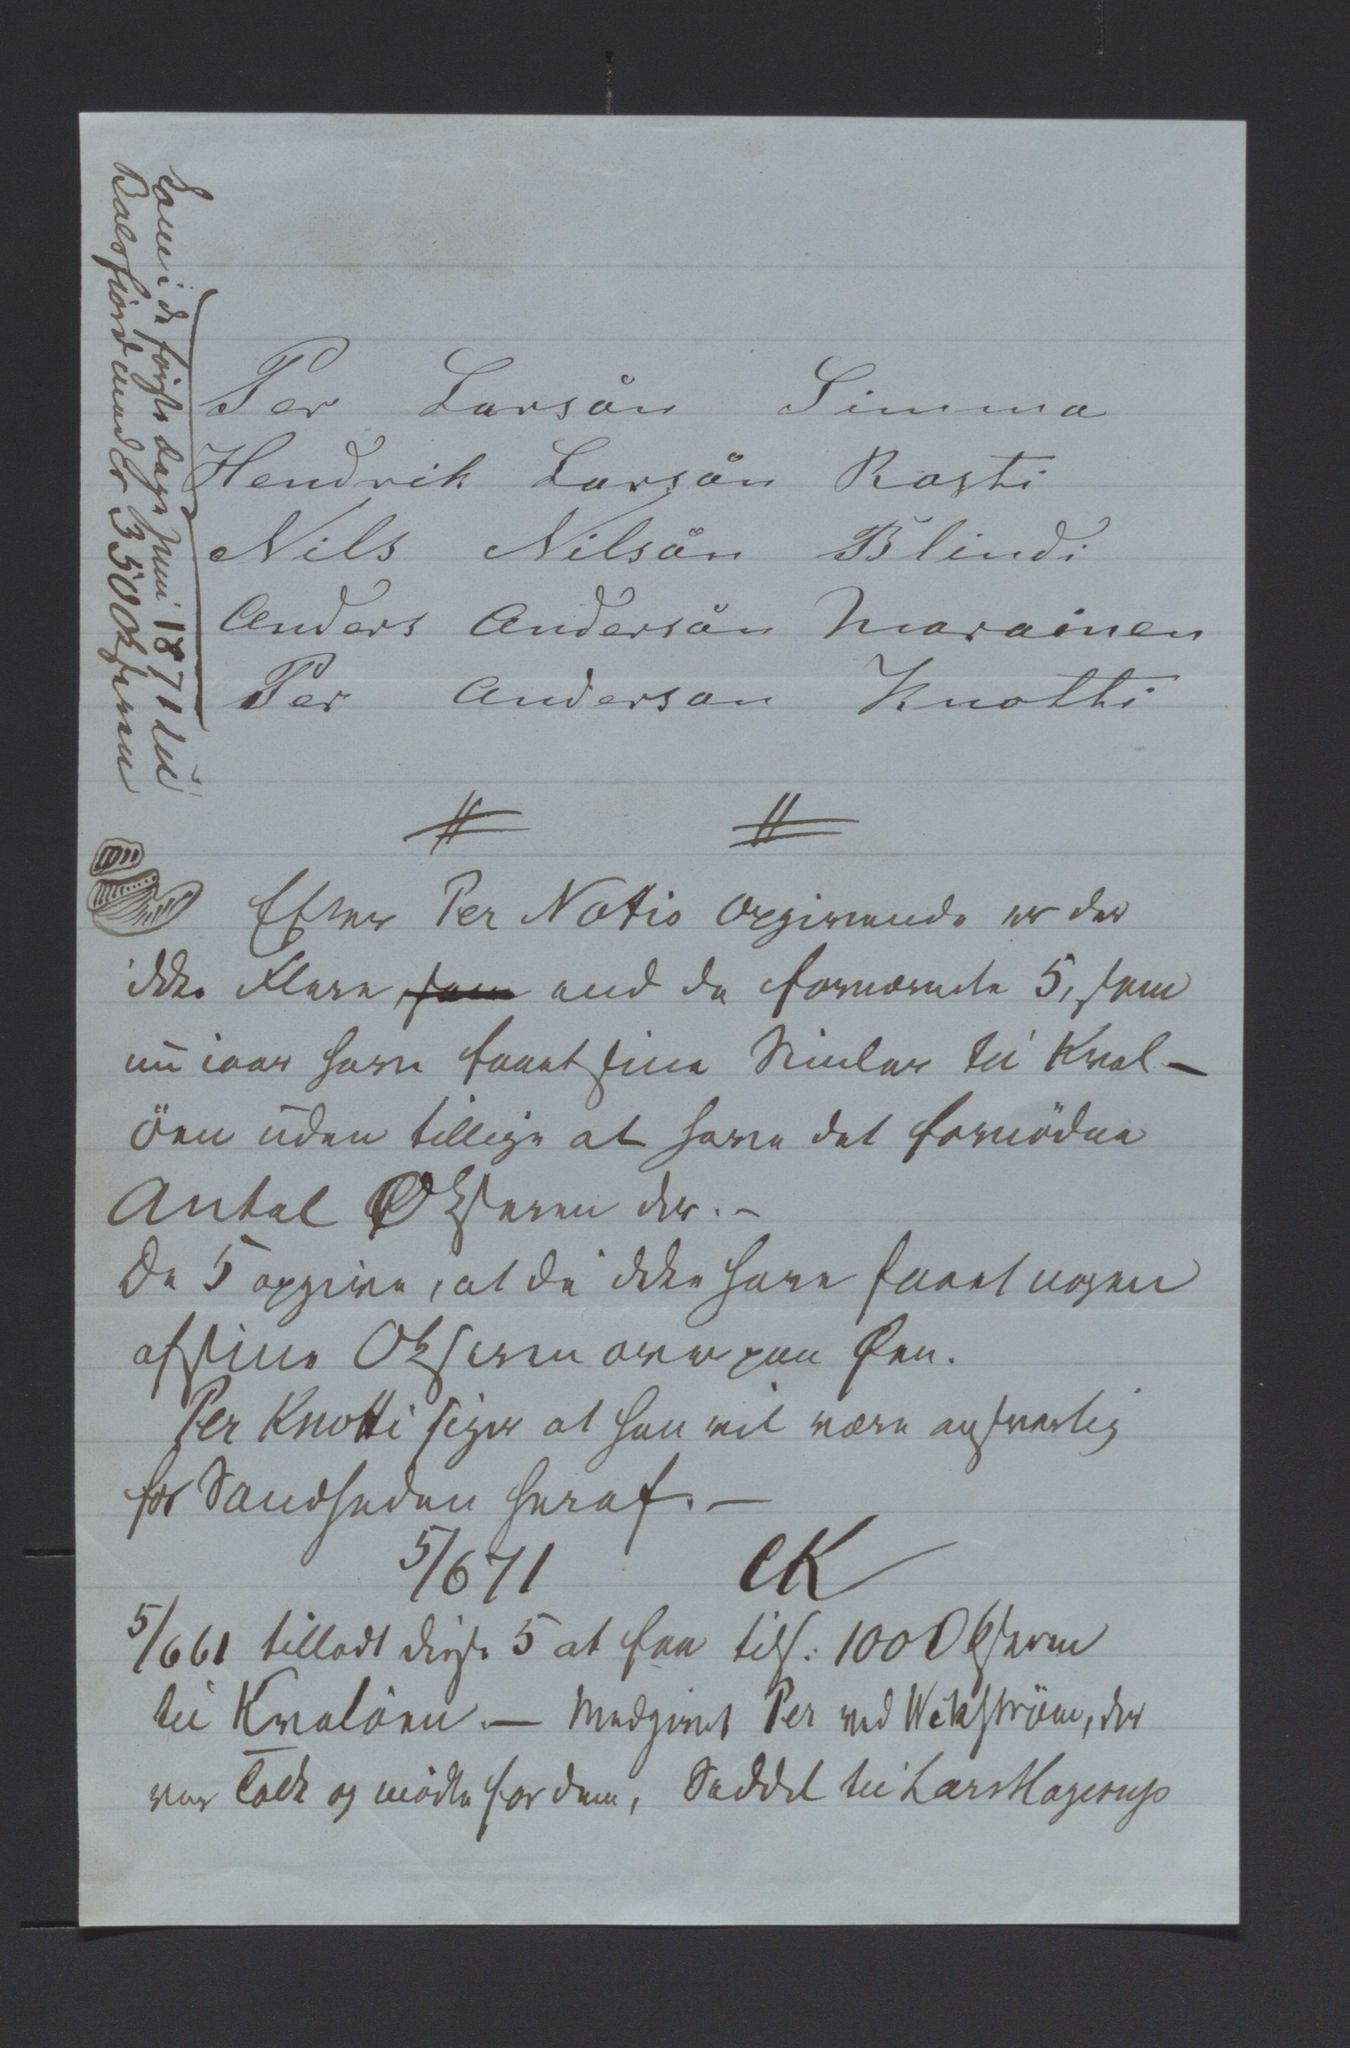 Kom i de første Dage Juni 1871 til
Balsfjord med Ca 3500 Rhener
Per Larsån Simma
Hendrik Larsån Rasti
Nils Nilsån Blindi
Anders Andersån Marainen
Per Anderson Knotti
Efter Per Nottis Opgivende er der
ikke Flere som end de fornævnte 5, som
nu iaar have faaet sine Simler til Kval-
öen uden tillige at have det fornödne
Antal Oxrener der. -
De 5 opgive, at de ikke have faaet nogen
af sine Oxrener over paa Øen.
Per Knotti siger at han vil være ansvarlig
for Sandheden heraf. -
5/6 71 CK
5/6 61 tilladt disse 5 at faa tils: 100 Oxrener
til Kvalöen. - Medgivet Per ved Wikström, der
var Tolk og mödte for dem, Seddel til Lars Hagerup